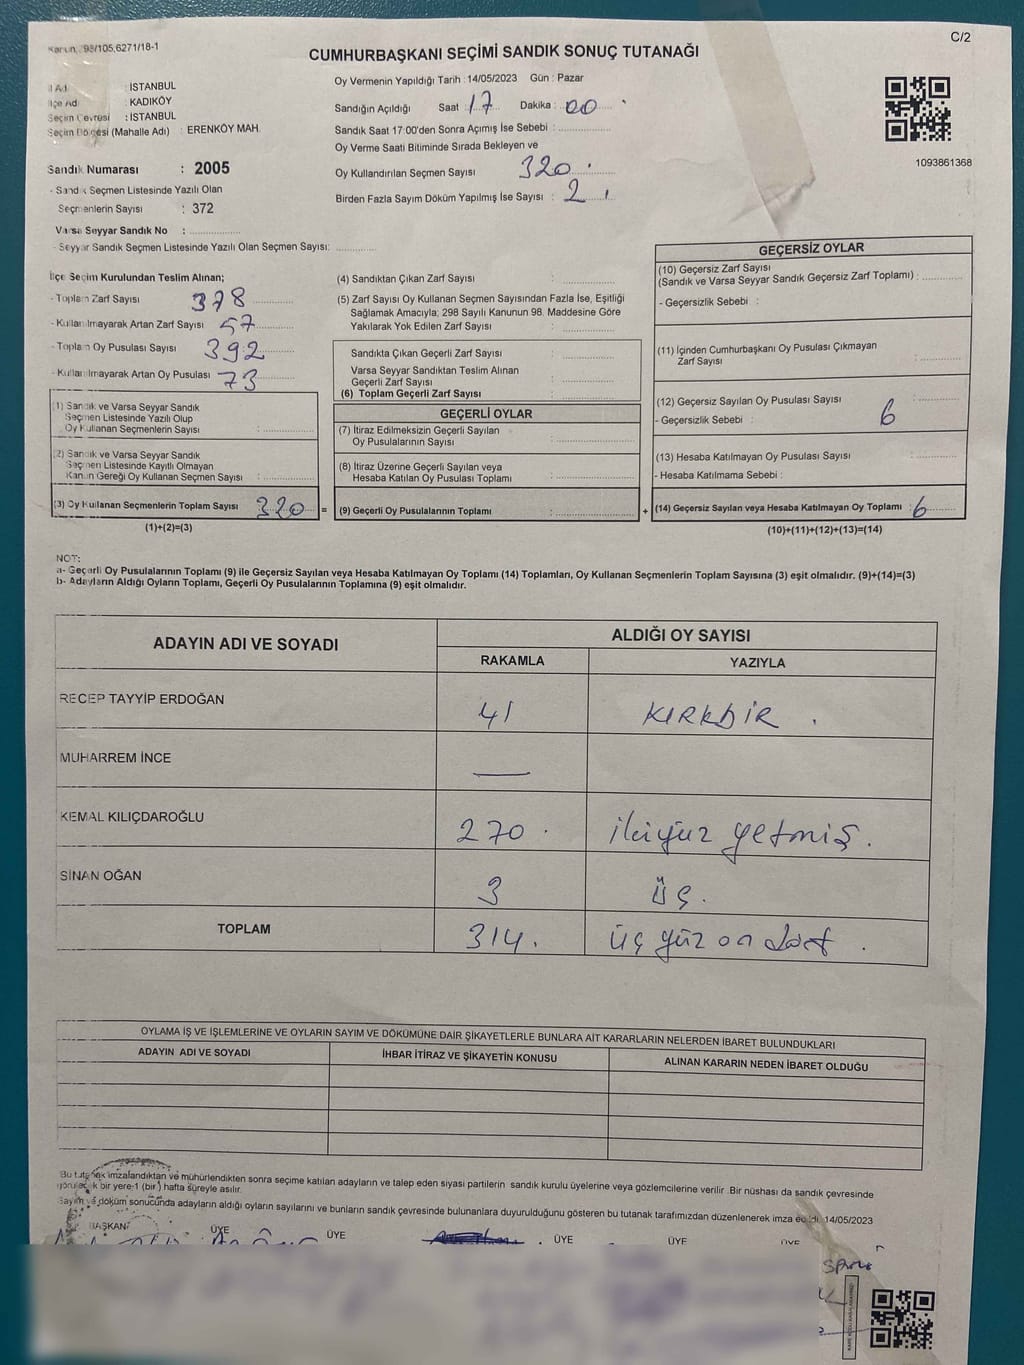 Kanun, 98/105,6271/18-1
C/2
CUMHURBAŞKANI SEÇİMİ SANDIK SONUÇ TUTANAĞI
İl Adı : İSTANBUL
İlçe Adı : KADIKÖY
Seçim Çevresi : İSTANBUL
Seçim Bölgesi (Mahalle Adı) : ERENKÖY MAH.
Sandık Numarası : 2005
- Sandık Seçmen Listesinde Yazılı Olan
Seçmenlerin Sayısı : 372
Varsa Seyyar Sandık No :
- Seyyar Sandık Seçmen Listesinde Yazılı Olan Seçmen Sayısı:
Oy Vermenin Yapıldığı Tarih : 14/05/2023 Gün : Pazar
Sandığın Açıldığı Saat : 17 Dakika : 00
Sandık Saat 17:00'den Sonra Açımış İse Sebebi :
Oy Verme Saati Bitiminde Sırada Bekleyen ve
Oy Kullandırılan Seçmen Sayısı 320
Birden Fazla Sayım Döküm Yapılmış İse Sayısı : 2
1093861368
İlçe Seçim Kurulundan Teslim Alınan;
- Toplam Zarf Sayısı 378
- Kullanılmayarak Artan Zarf Sayısı 57
- Toplam Oy Pusulası Sayısı 392
- Kullanılmayarak Artan Oy Pusulası 73
(1) Sandık ve Varsa Seyyar Sandık
Seçmen Listesinde Yazılı Olup
Oy Kullanan Seçmenlerin Sayısı :
(2) Sandık ve Varsa Seyyar Sandık
Seçmen Listesinde Kayıtlı Olmayan
Kanun Gereği Oy Kullanan Seçmen Sayısı :
(3) Oy Kullanan Seçmenlerin Toplam Sayısı 320 =
(1)+(2)=(3)
(4) Sandıktan Çıkan Zarf Sayısı :
(5) Zarf Sayısı Oy Kullanan Seçmen Sayısından Fazla İse, Eşitliği
Sağlamak Amacıyla; 298 Sayılı Kanunun 98. Maddesine Göre
Yakılarak Yok Edilen Zarf Sayısı :
Sandıkta Çıkan Geçerli Zarf Sayısı :
Varsa Seyyar Sandıktan Teslim Alınan
Geçerli Zarf Sayısı :
(6) Toplam Geçerli Zarf Sayısı :
GEÇERLİ OYLAR
(7) İtiraz Edilmeksizin Geçerli Sayılan
Oy Pusulalarının Sayısı :
(8) İtiraz Üzerine Geçerli Sayılan veya
Hesaba Katılan Oy Pusulası Toplamı :
(9) Geçerli Oy Pusulalarının Toplamı : +
GEÇERSİZ OYLAR
(10) Geçersiz Zarf Sayısı
(Sandık ve Varsa Seyyar Sandık Geçersiz Zarf Toplamı) :
- Geçersizlik Sebebi :
(11) İçinden Cumhurbaşkanı Oy Pusulası Çıkmayan
Zarf Sayısı :
(12) Geçersiz Sayılan Oy Pusulası Sayısı
- Geçersizlik Sebebi : 6
(13) Hesaba Katılmayan Oy Pusulası Sayısı :
- Hesaba Katılmama Sebebi :
(14) Geçersiz Sayılan veya Hesaba Katılmayan Oy Toplamı : 6
(10)+(11)+(12)+(13)=(14)
NOT:
a- Geçerli Oy Pusulalarının Toplamı (9) ile Geçersiz Sayılan veya Hesaba Katılmayan Oy Toplamı (14) Toplamları, Oy Kullanan Seçmenlerin Toplam Sayısına (3) eşit olmalıdır. (9)+(14)=(3)
b- Adayların Aldığı Oyların Toplamı, Geçerli Oy Pusulalarının Toplamına (9) eşit olmalıdır.
ADAYIN ADI VE SOYADI ALDIĞI OY SAYISI
RAKAMLA YAZIYLA
RECEP TAYYİP ERDOĞAN 41 KIRKbİR.
MUHARREM İNCE —
KEMAL KILIÇDAROĞLU 270. ikiyüz yetmiş.
SİNAN OĞAN 3 üç.
TOPLAM 314. üç yüz on dört.
OYLAMA İŞ VE İŞLEMLERİNE VE OYLARIN SAYIM VE DÖKÜMÜNE DAİR ŞİKAYETLERLE BUNLARA AİT KARARLARIN NELERDEN İBARET BULUNDUKLARI
ADAYIN ADI VE SOYADI İHBAR İTİRAZ VE ŞİKAYETİN KONUSU ALINAN KARARIN NEDEN İBARET OLDUĞU
Bu tutanak imzalandıktan ve mühürlendikten sonra seçime katılan adayların ve talep eden siyasi partilerin sandık kurulu üyelerine veya gözlemcilerine verilir. Bir nüshası da sandık çevresinde
görülecek bir yere-1 (bir) hafta süreyle asılır.
Sayım ve döküm sonucunda adayların aldığı oyların sayılarını ve bunların sandık çevresinde bulunanlara duyurulduğunu gösteren bu tutanak tarafımızdan düzenlenerek imza edildi. 14/05/2023
BAŞKAN ÜYE ÜYE ÜYE ÜYE ÜYE